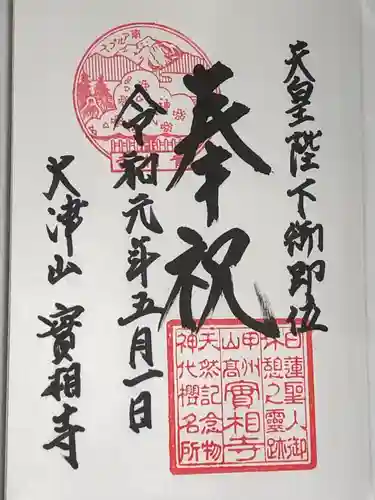 天皇陛下御即位
奉祝
令和元年五月一日
大津山 實相寺
南アルプス
日蓮聖人御
休憩之靈跡
甲州
山高
實相寺
天然記念物
神代櫻名所